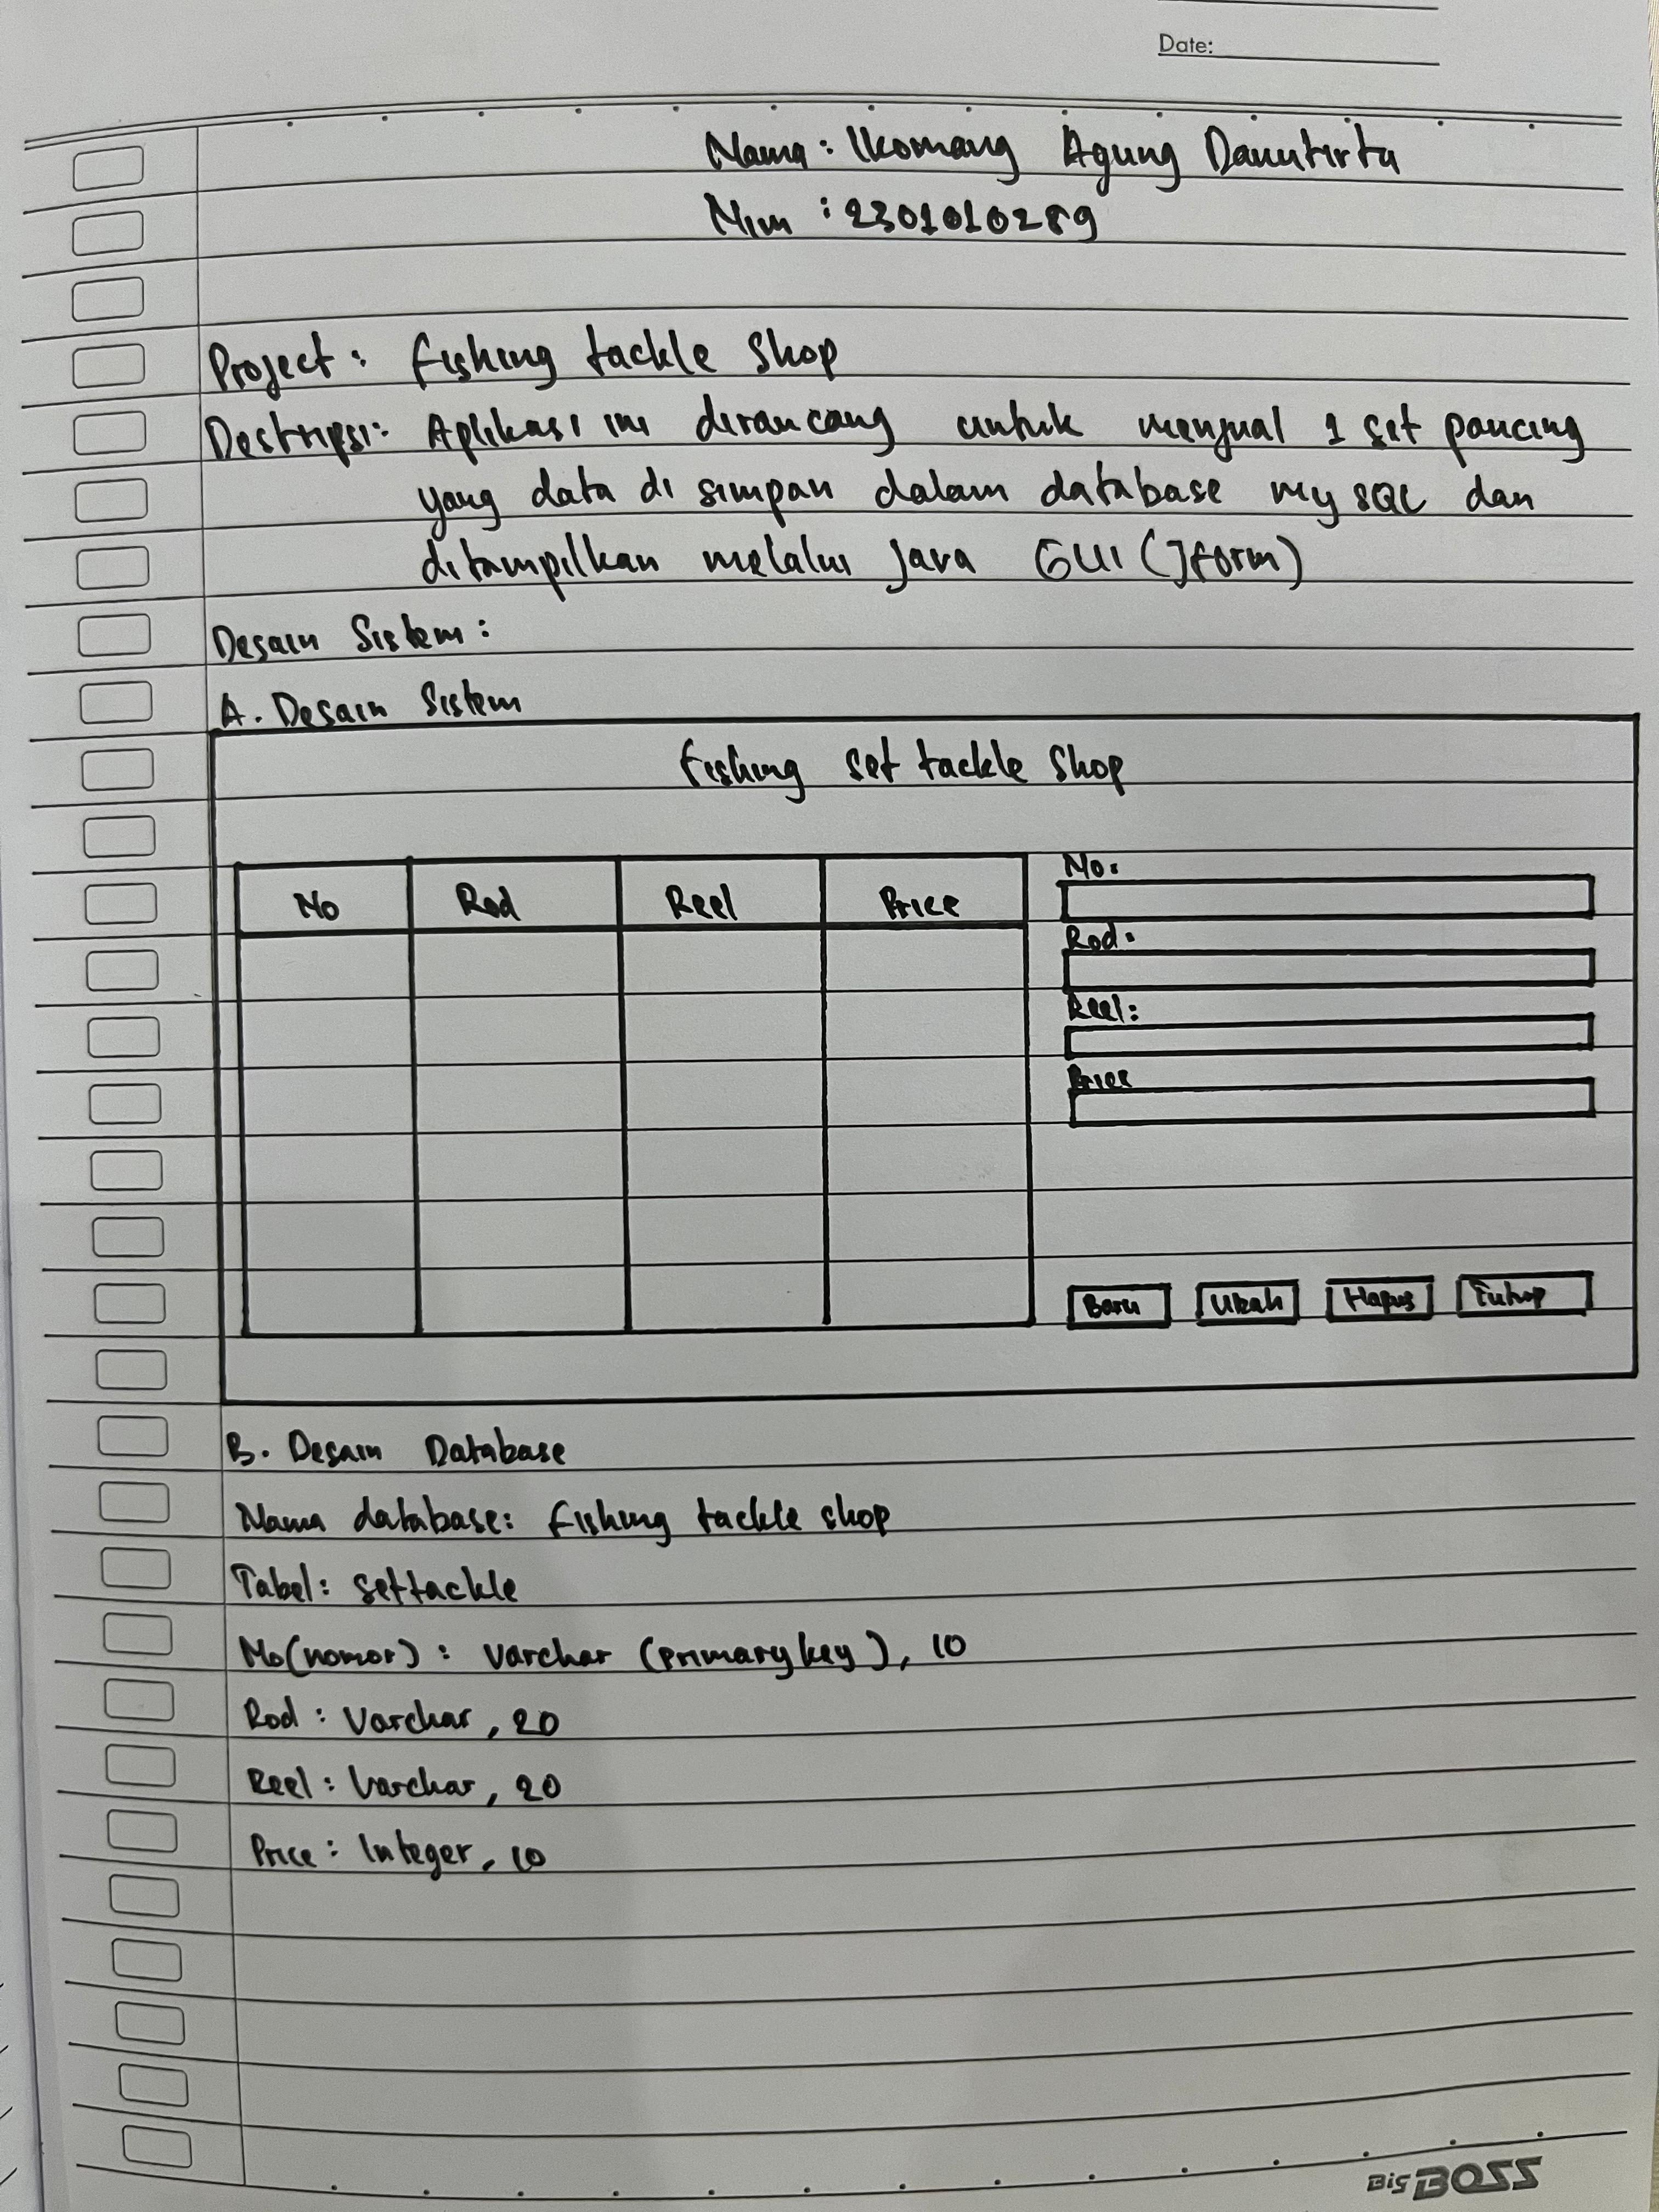 Date:
Nama : I Komang Agung Danutirta
Nim : 2301010289
Project : fishing tackle shop
Deskripsi : Aplikasi ini dirancang untuk menjual 1 set pancing
yang data di simpan dalam database my SQL dan
ditampilkan melalui Java GUI (Jform)
Desain Sistem :
A. Desain Sistem
fishing set tackle shop
No Rod Reel Price
No:
Rod:
Reel:
Price
Baru Ubah Hapus Tutup
B. Desain Database
Nama database: fishing tackle shop
Tabel: settackle
No(nomor) : Varchar (primary key), 10
Rod : Varchar, 20
Reel : Varchar, 20
Price : Integer, 10
BIG BOSS